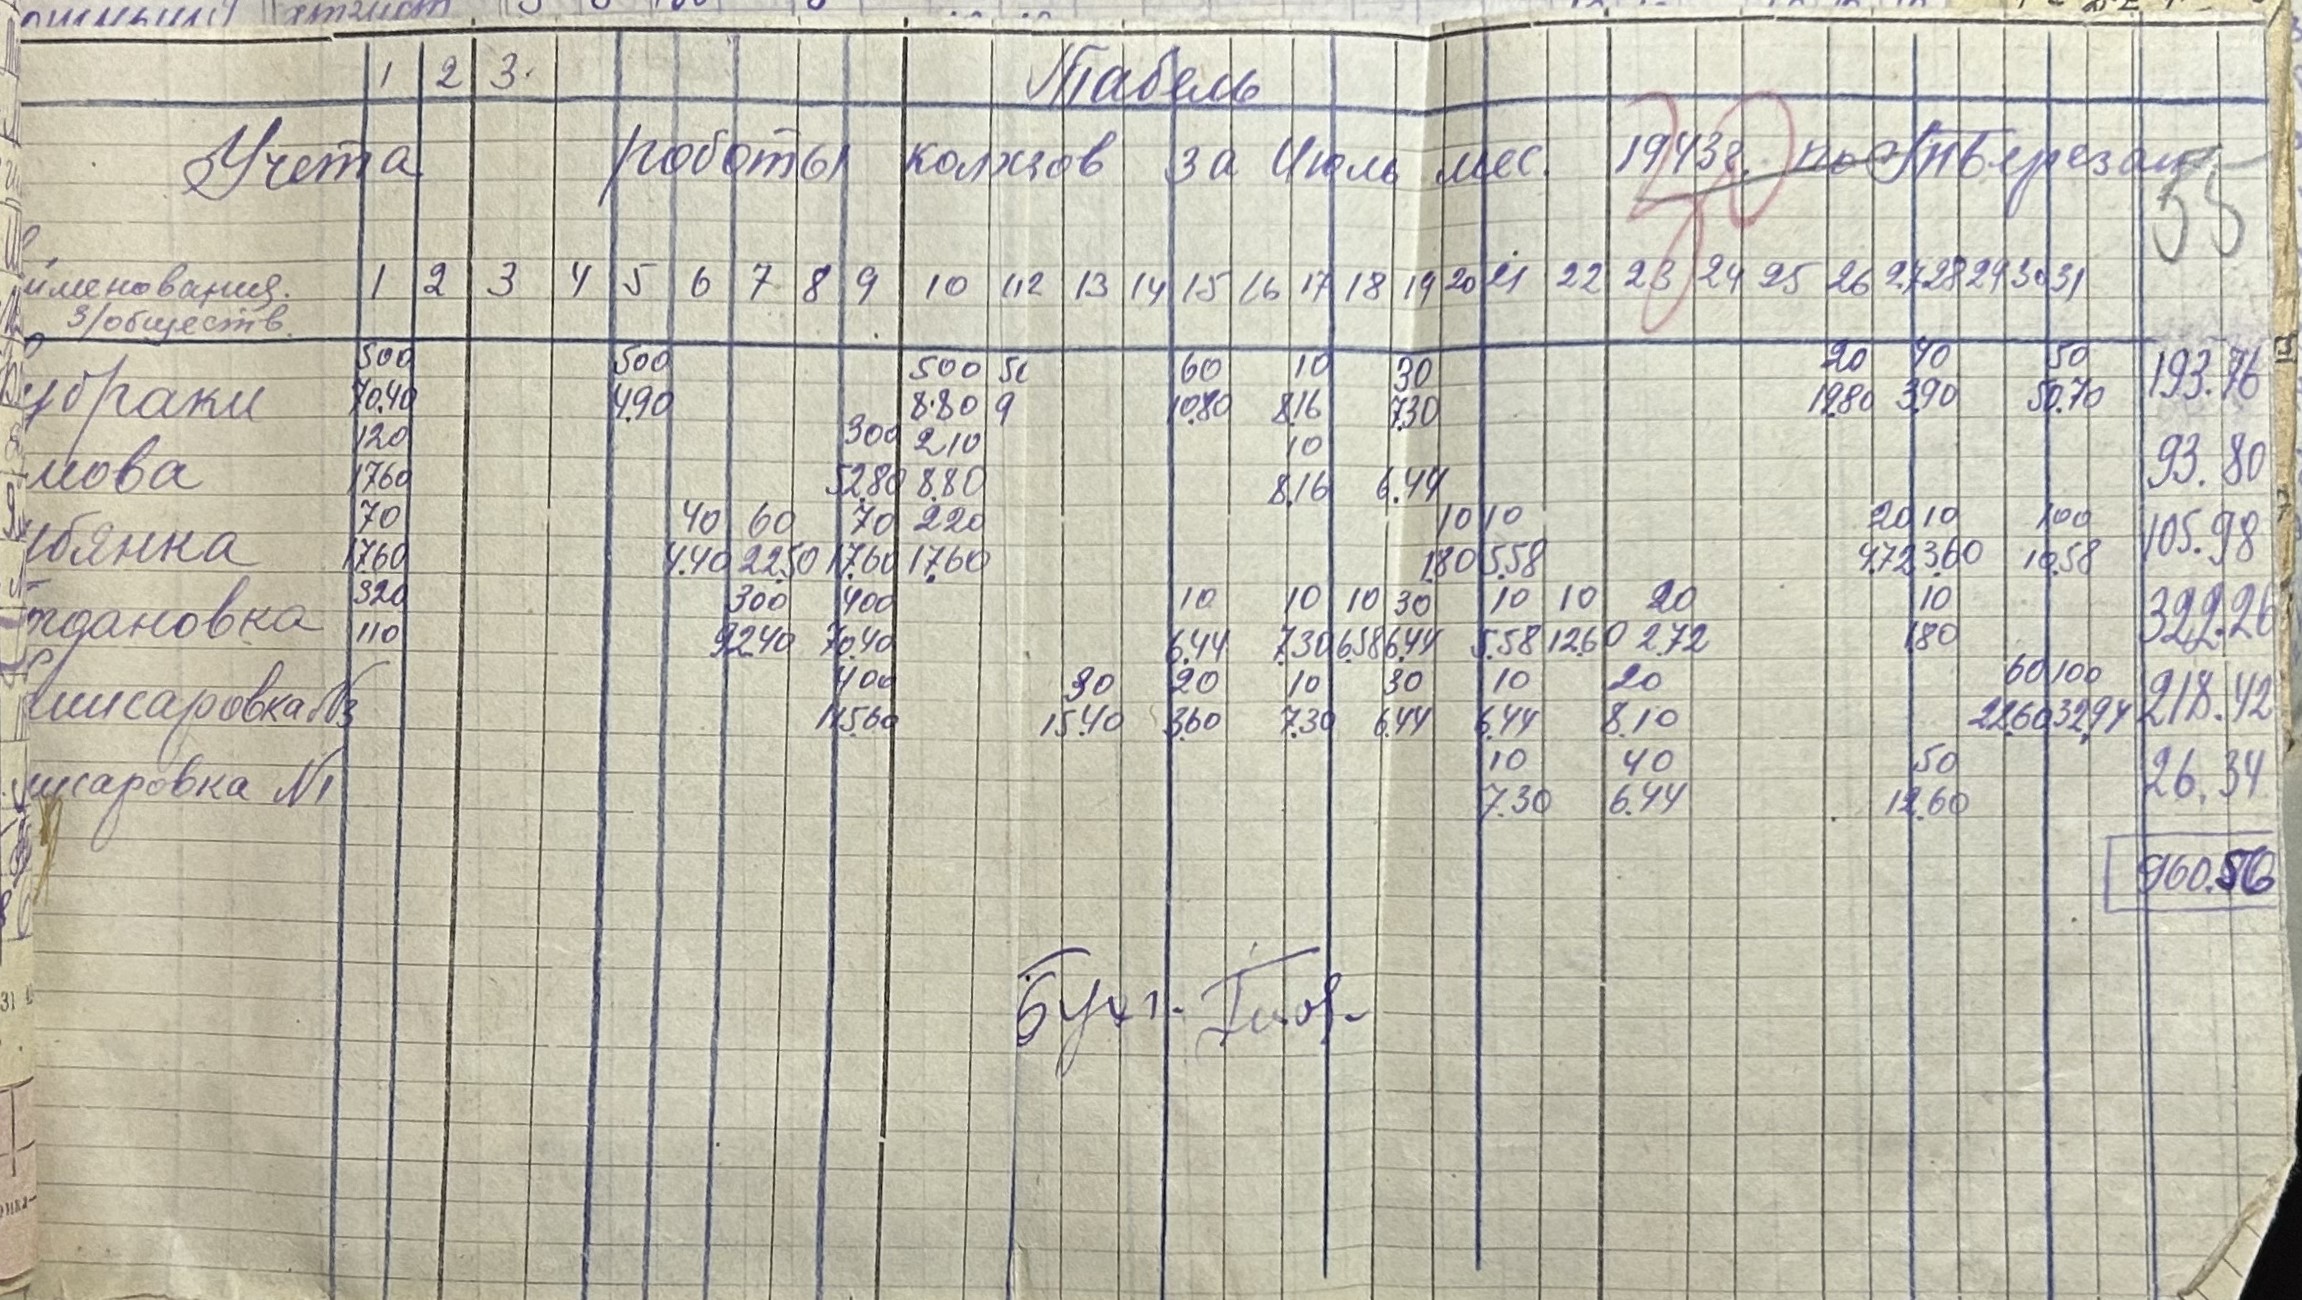 1 2 3. Табель
Учета роботы колхзов за Июль мес. 1943г.
35
именования. 1 2 3 4 5 6 7 8 9 10 112 13 14 15 16 17 18 19 20 21 22 23 24 25 26 27 28 29 30 31
З/обществ.
500 500 500 50 60 10 30 20 40 50
убраки 70.40 4.90 8.80 9 10.80 8.16 7.30 12.80 3.90 50.70 193.76
120 300 210 10
мова 17.60 52.80 8.80 8.16 6.44 93.80
70 40 60 70 220 10 10 20 10 100
бянка 17.60 4.40 22.50 17.60 17.60 1.80 5.58 4.72 3.60 10.58 105.98
320 300 400 10 10 10 30 10 10 20 10
гдановка 110 92.40 70.40 6.44 7.30 6.58 6.44 5.58 12.60 2.72 1.80 322.26
400 30 20 10 30 10 20 60 100
мисаровка №3 115.60 15.40 3.60 7.30 6.44 6.44 8.10 22.60 32.94 218.42
10 40 50
исаровка №1 7.30 6.44 12.60 26.34
960.56
Бухг.